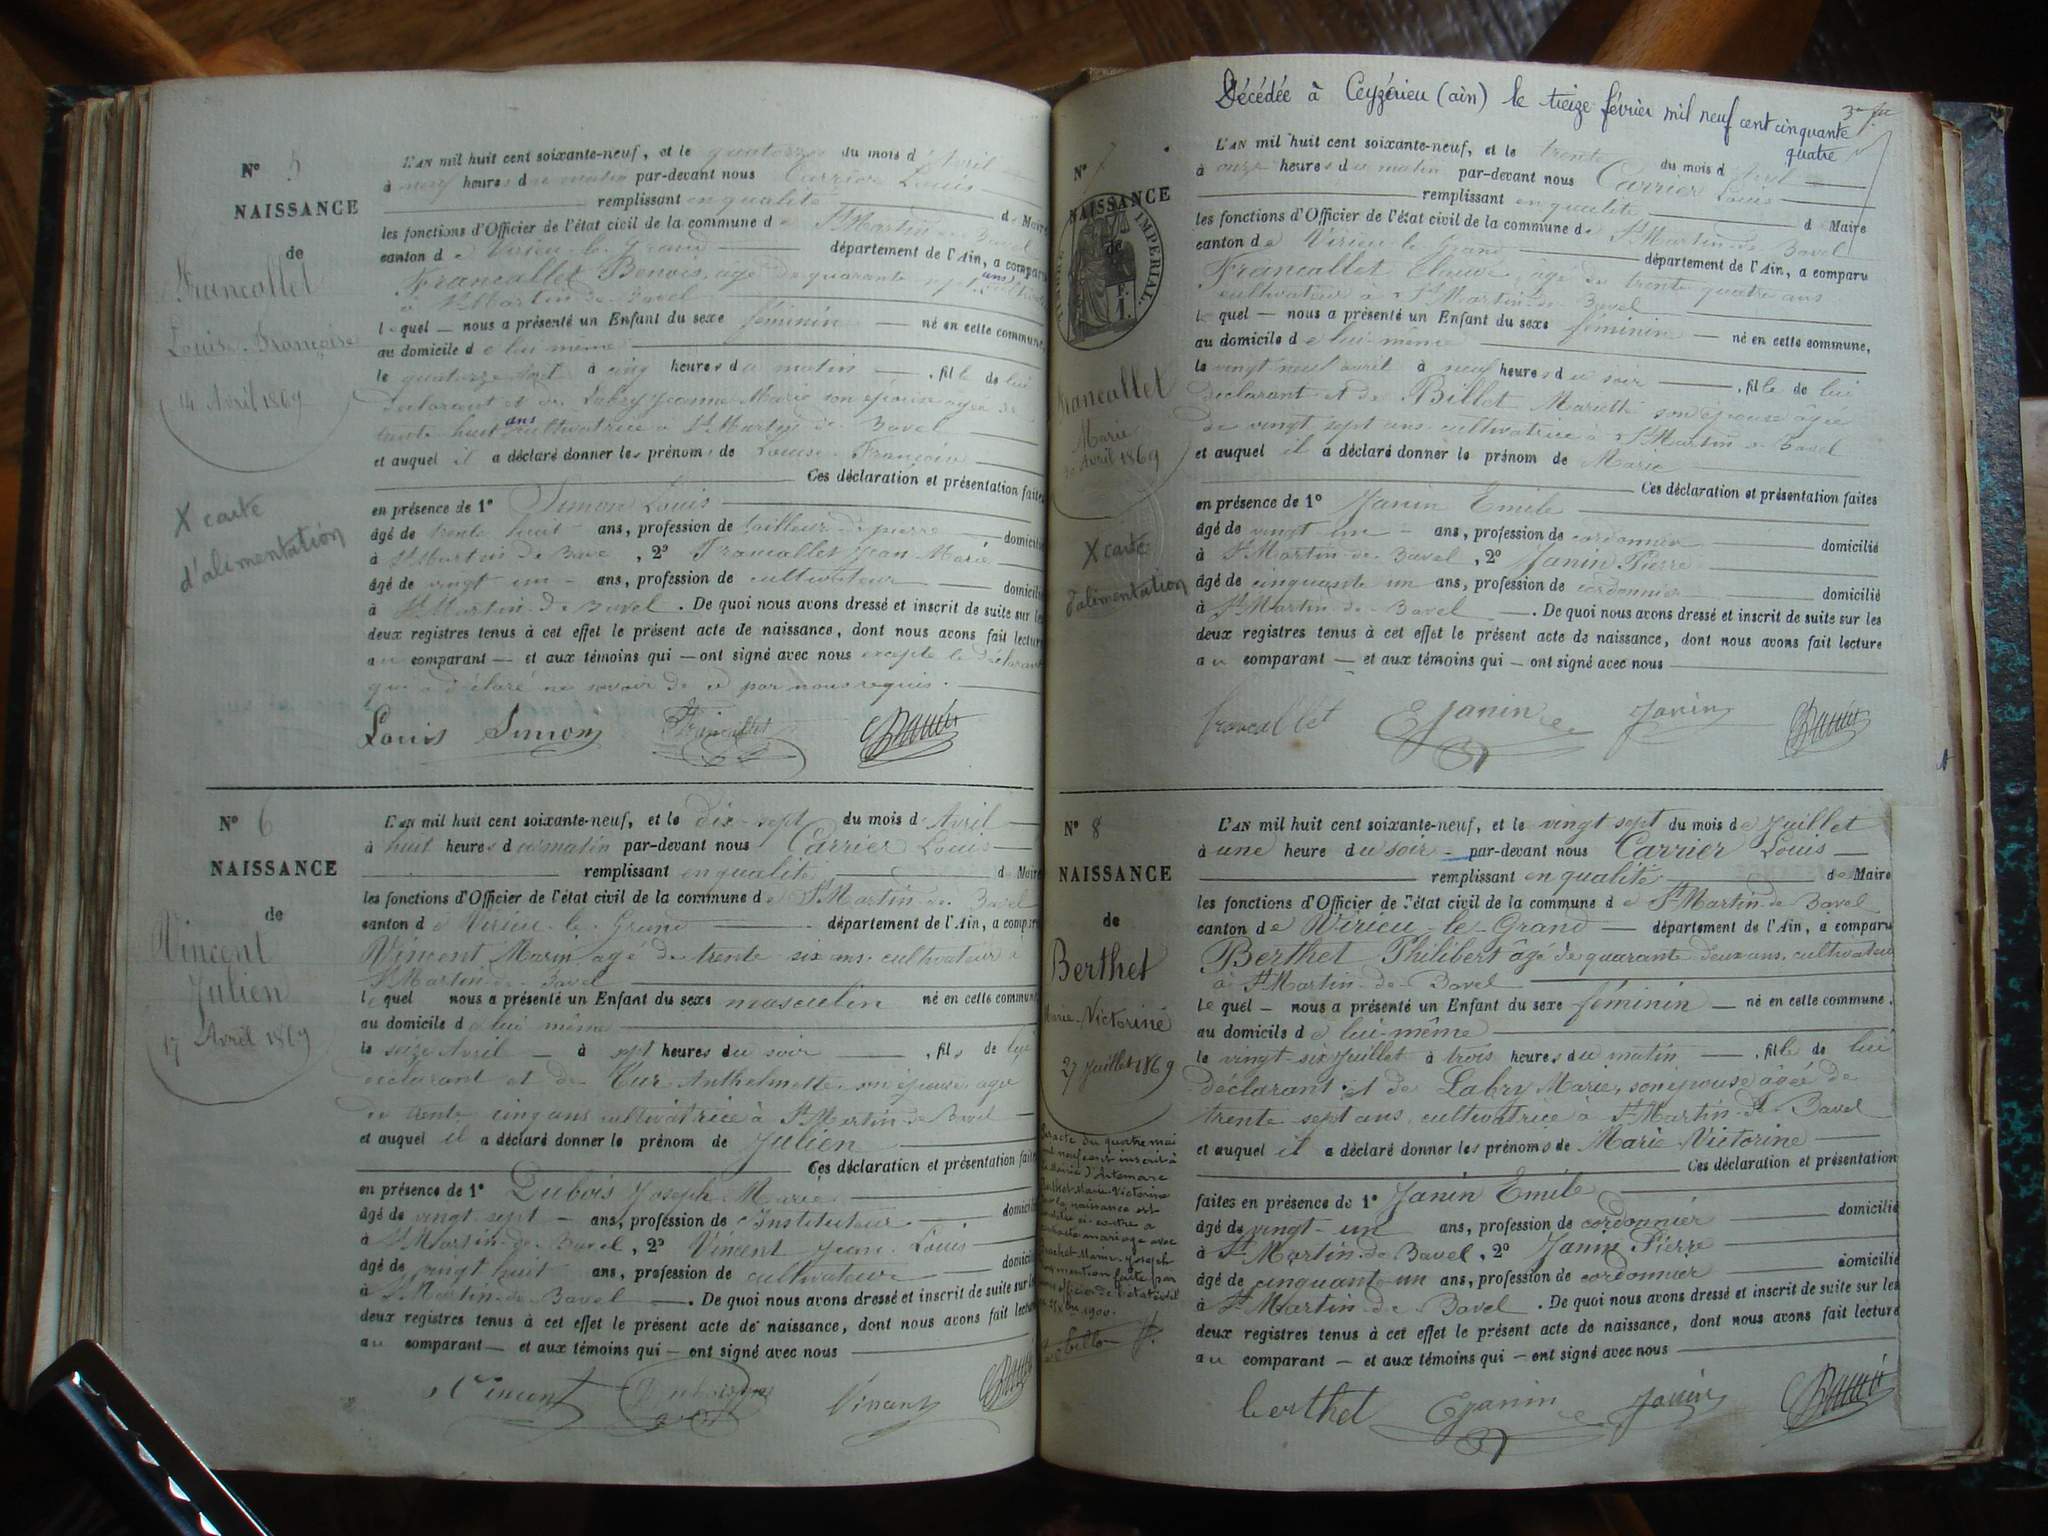 N° 5
NAISSANCE
de
Francallet
Louise-Françoise
14 Avril 1869
X carte
d'alimentation
L'AN mil huit cent soixante-neuf, et le quatorze du mois d'Avril
à neuf heures du matin par-devant nous Carrier Louis
remplissant en qualité de Maire
les fonctions d'Officier de l'état civil de la commune de St Martin de Bavel
canton de Virieu-le-Grand département de l'Ain, a comparu
Francallet Benois, âgé de quarante sept ans cultivateur
à St Martin de Bavel
lequel nous a présenté un Enfant du sexe féminin né en cette commune,
au domicile de lui même
le quatorze à cinq heures du matin, fille de lui
déclarant et de Labry Jeanne Marie son épouse agée de
trente huit ans cultivatrice à St Martin de Bavel
et auquel il a déclaré donner les prénoms de Louise Françoise
Ces déclaration et présentation faites
en présence de 1° Simon Louis
âgé de trente huit ans, profession de tailleur de pierre domicilié
à St Martin de Bavel, 2° Francallet Jean Marie
âgé de vingt un ans, profession de cultivateur domicilié
à St Martin de Bavel. De quoi nous avons dressé et inscrit de suite sur les
deux registres tenus à cet effet le présent acte de naissance, dont nous avons fait lecture
au comparant et aux témoins qui ont signé avec nous excepté le déclarant
qui a déclaré ne savoir de ce par nous requis.
Louis Simon Francallet
N° 6
NAISSANCE
de
Vincent
Julien
17 Avril 1869
L'AN mil huit cent soixante-neuf, et le dix-sept du mois d'Avril
à huit heures du matin par-devant nous Carrier Louis
remplissant en qualité de Maire
les fonctions d'Officier de l'état civil de la commune de St Martin de Bavel
canton de Virieu-le-Grand département de l'Ain, a comparu
Vincent Marin agé de trente six ans cultivateur à
St Martin-de-Bavel
lequel nous a présenté un Enfant du sexe masculin né en cette commune
au domicile de lui même
le seize Avril à sept heures du soir, fils de lui
déclarant et de Cur Anthelmette son épouse, agée
de trente cinq ans cultivatrice à St Martin-de-Bavel
et auquel il a déclaré donner le prénom de Julien
Ces déclaration et présentation faites
en présence de 1° Dubois Joseph Marie
âgé de vingt-sept ans, profession de Instituteur domicilié
à St Martin-de-Bavel, 2° Vincent Jean-Louis
âgé de vingt huit ans, profession de cultivateur domicilié
à St Martin-de-Bavel. De quoi nous avons dressé et inscrit de suite sur les
deux registres tenus à cet effet le présent acte de naissance, dont nous avons fait lecture
au comparant et aux témoins qui ont signé avec nous
Vincent Vincent
Décédée à Ceyzérieu (ain) le treize février mil neuf cent cinquante
quatre
N° 7
NAISSANCE
de
TIMBRE IMPÉRIAL.
Francallet
Marie
Avril 1869
X carte
d'alimentation
L'AN mil huit cent soixante-neuf, et le trente du mois d'Avril
à onze heures du matin par-devant nous Carrier Louis
remplissant en qualité de Maire
les fonctions d'Officier de l'état civil de la commune de St Martin-de-Bavel
canton de Virieu-le-Grand département de l'Ain, a comparu
Francallet Claude âgé de trente quatre ans
cultivateur à St Martin-de-Bavel
lequel nous a présenté un Enfant du sexe féminin né en cette commune,
au domicile de lui-même
le vingt neuf avril à neuf heures du soir, fille de lui
déclarant et de Billet Mariette son épouse âgée
de vingt sept ans cultivatrice à St Martin de Bavel
et auquel il a déclaré donner le prénom de Marie
Ces déclaration et présentation faites
en présence de 1° Janin Emile
âgé de vingt un ans, profession de cordonnier domicilié
à St Martin-de-Bavel, 2° Janin Pierre
âgé de cinquante un ans, profession de cordonnier domicilié
à St Martin-de-Bavel. De quoi nous avons dressé et inscrit de suite sur les
deux registres tenus à cet effet le présent acte de naissance, dont nous avons fait lecture
au comparant et aux témoins qui ont signé avec nous
francallet E Janin Janin
N° 8
NAISSANCE
de
Berthet
Marie-Victorine
27 Juillet 1869
acte du quatre mai
mil neuf cent inscrit à
la mairie d'Artemare
Berthet Marie Victorine
la naissance est
ci-contre a
contracté mariage avec
Marin-Joseph
mention faite par
officier de l'état civil
1900.
L'AN mil huit cent soixante-neuf, et le vingt sept du mois de Juillet
à une heure du soir par-devant nous Carrier Louis
remplissant en qualité de Maire
les fonctions d'Officier de l'état civil de la commune de St Martin-de Bavel
canton de Virieu-le-Grand département de l'Ain, a comparu
Berthet Philibert âgé de quarante deux ans, cultivateur
à St Martin-de-Bavel
Lequel nous a présenté un Enfant du sexe féminin né en cette commune.
au domicile de lui-même
le vingt-six Juillet à trois heures du matin, fille de lui
déclarant et de Labry Marie, son épouse âgée de
trente sept ans, cultivatrice à St Martin-de-Bavel
et auquel il a déclaré donner les prénoms de Marie Victorine
Ces déclaration et présentation
faites en présence de 1° Janin Emile
âgé de vingt-un ans, profession de cordonnier domicilié
à St Martin-de Bavel, 2° Janin Pierre
âgé de cinquante un ans, profession de cordonnier domicilié
à St Martin-de-Bavel. De quoi nous avons dressé et inscrit de suite sur les
deux registres tenus à cet effet le présent acte de naissance, dont nous avons fait lecture
au comparant et aux témoins qui ont signé avec nous
berthet E janin Janin